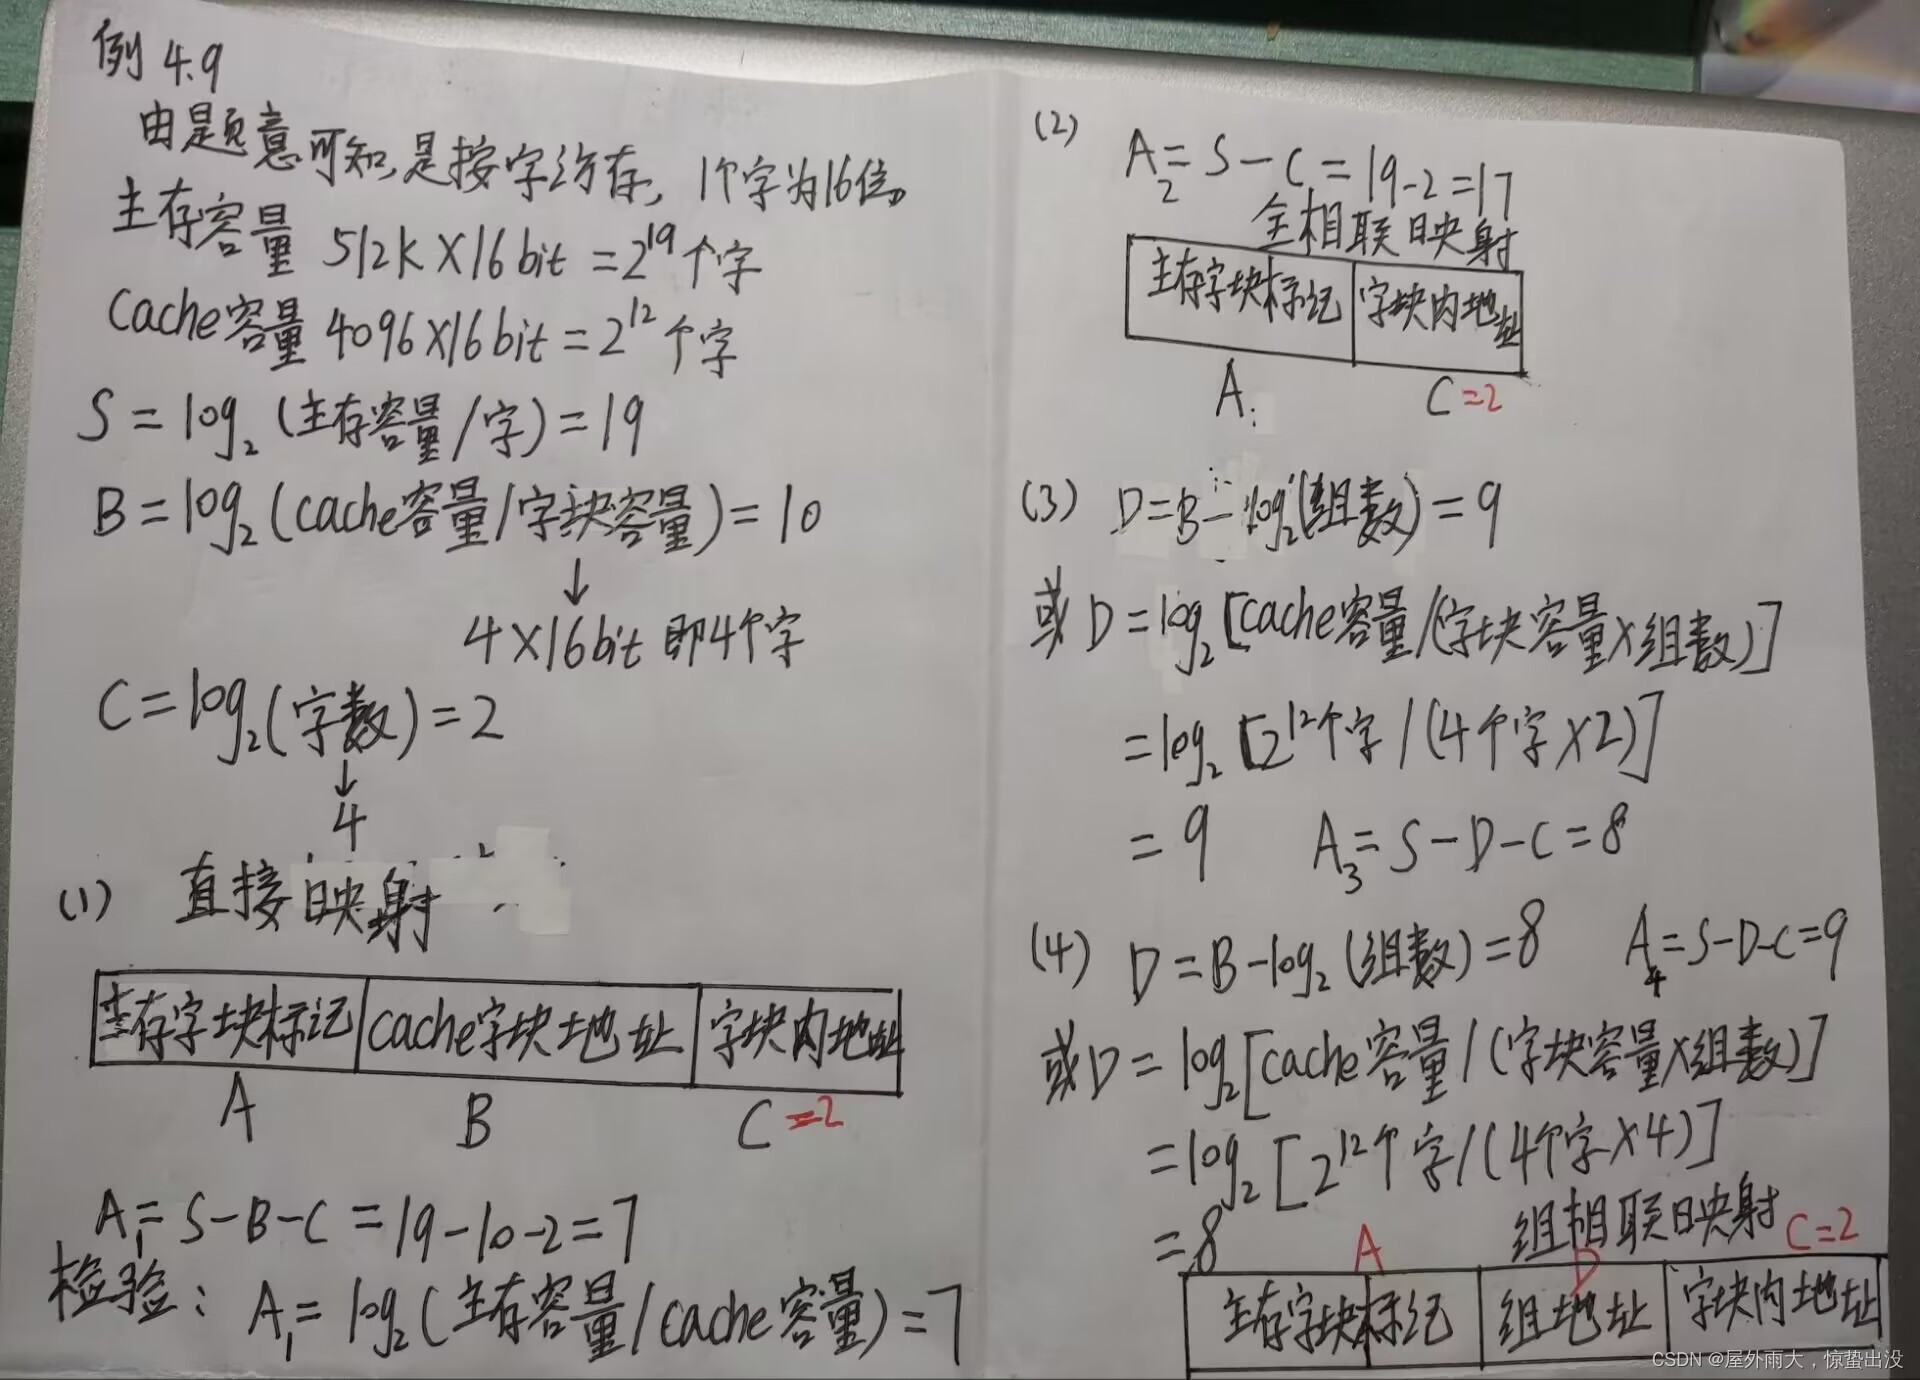 例 4.9
由是页意可知,是按字访存, 1个字为16位。
主存容量 512K×16bit=2^19个字
Cache容量 4096×16bit=2^12个字
S=log₂(主存容量/字)=19
B=log₂(cache容量/字块容量)=10
↓
4×16bit 即4个字
C=log₂(字数)=2
↓
4
(1) 直接映射
主存字块标记 cache字块地址 字块内地址
A B C=2
A₁=S-B-C=19-10-2=7
检验: A₁=log₂(主存容量/cache容量)=7
(2) A₂=S-C=19-2=17
全相联映射
主存字块标记 字块内地址
A C=2
(3) D=B-log₂(组数)=9
或D=log₂[cache容量/(字块容量×组数)]
=log₂[2^12个字/(4个字×2)]
=9 A₃=S-D-C=8
(4) D=B-log₂(组数)=8 A₄=S-D-C=9
或D=log₂[cache容量/(字块容量×组数)]
=log₂[2^12个字/(4个字×4)]
=8
组相联映射
A D C=2
主存字块标记 组地址 字块内地址
CSDN @屋外雨大，惊蛰出没